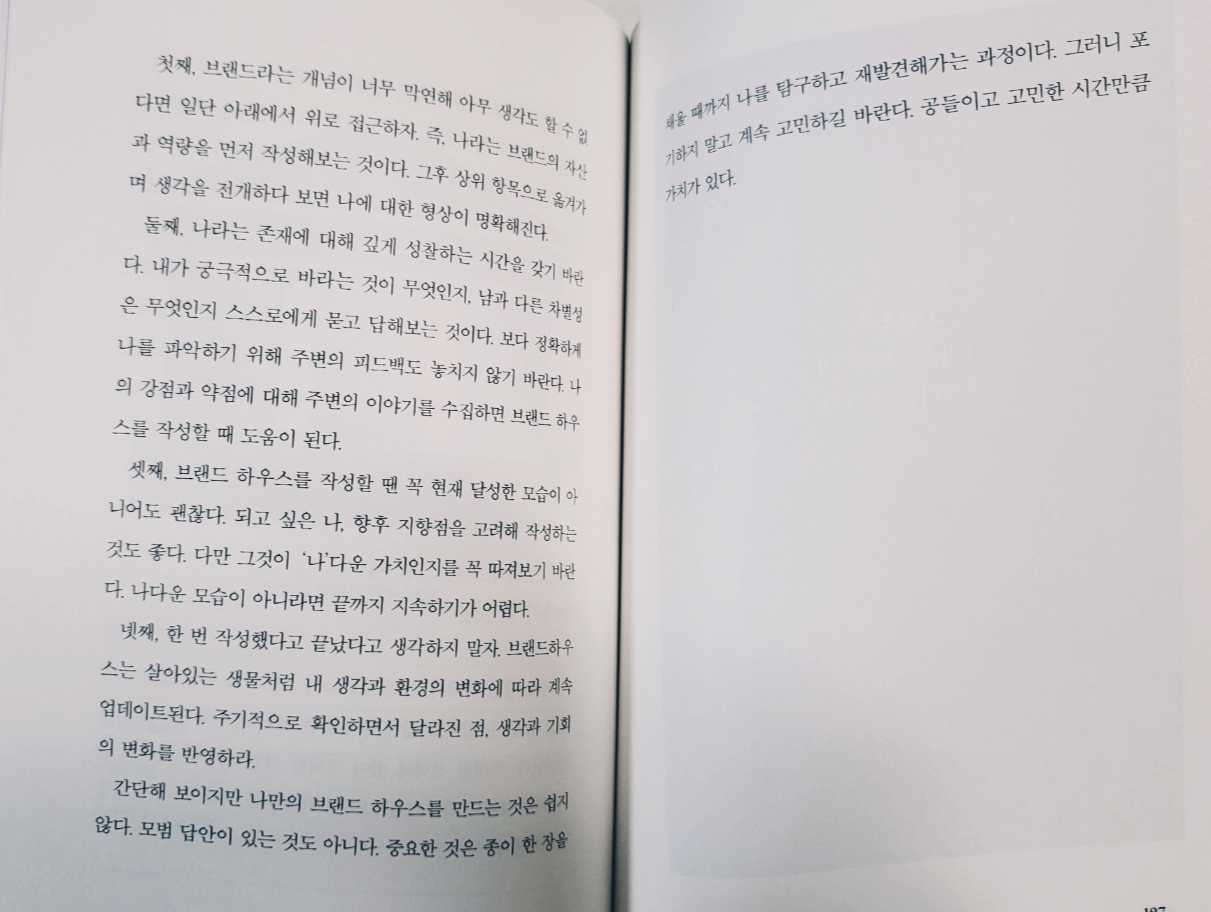 첫째, 브랜드라는 개념이 너무 막연해 아무 생각도 할 수 없
다면 일단 아래에서 위로 접근하자. 즉, 나라는 브랜드의 자산
과 역량을 먼저 작성해보는 것이다. 그후 상위 항목으로 옮겨가
며 생각을 전개하다 보면 나에 대한 형상이 명확해진다.
둘째, 나라는 존재에 대해 깊게 성찰하는 시간을 갖기 바란
다. 내가 궁극적으로 바라는 것이 무엇인지, 남과 다른 차별성
은 무엇인지 스스로에게 묻고 답해보는 것이다. 보다 정확하게
나를 파악하기 위해 주변의 피드백도 놓치지 않기 바란다. 나
의 강점과 약점에 대해 주변의 이야기를 수집하면 브랜드 하우
스를 작성할 때 도움이 된다.
셋째, 브랜드 하우스를 작성할 땐 꼭 현재 달성한 모습이 아
니어도 괜찮다. 되고 싶은 나, 향후 지향점을 고려해 작성하는
것도 좋다. 다만 그것이 ‘나’다운 가치인지를 꼭 따져보기 바란
다. 나다운 모습이 아니라면 끝까지 지속하기가 어렵다.
넷째, 한 번 작성했다고 끝났다고 생각하지 말자. 브랜드하우
스는 살아있는 생물처럼 내 생각과 환경의 변화에 따라 계속
업데이트된다. 주기적으로 확인하면서 달라진 점, 생각과 기회
의 변화를 반영하라.
간단해 보이지만 나만의 브랜드 하우스를 만드는 것은 쉽지
않다. 모범 답안이 있는 것도 아니다. 중요한 것은 종이 한 장을
채울 때까지 나를 탐구하고 재발견해가는 과정이다. 그러니 포
기하지 말고 계속 고민하길 바란다. 공들이고 고민한 시간만큼
가치가 있다.